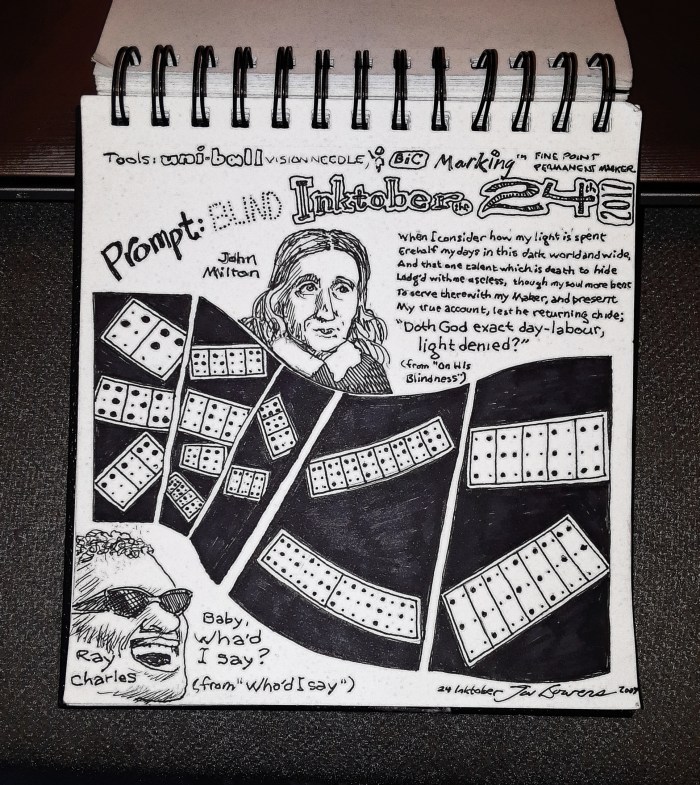 Tools: uni-ball VISION NEEDLE, & BiC Marking™ FINE POINT
PERMANENT MARKER
Prompt: BLIND
Inktober the 24th 2017
John
Milton
When I consider how my light is spent
Ere half my days in this dark world and wide,
And that one talent which is death to hide
Lodg'd with me useless, though my soul more bent
To serve therewith my Maker, and present
My true account, lest he returning chide;
"Doth God exact day-labour,
light denied?"
(from "On His
Blindness")
Ray
Charles
Baby,
Wha'd
I say?
(from "Wha'd I say")
24 Inktober